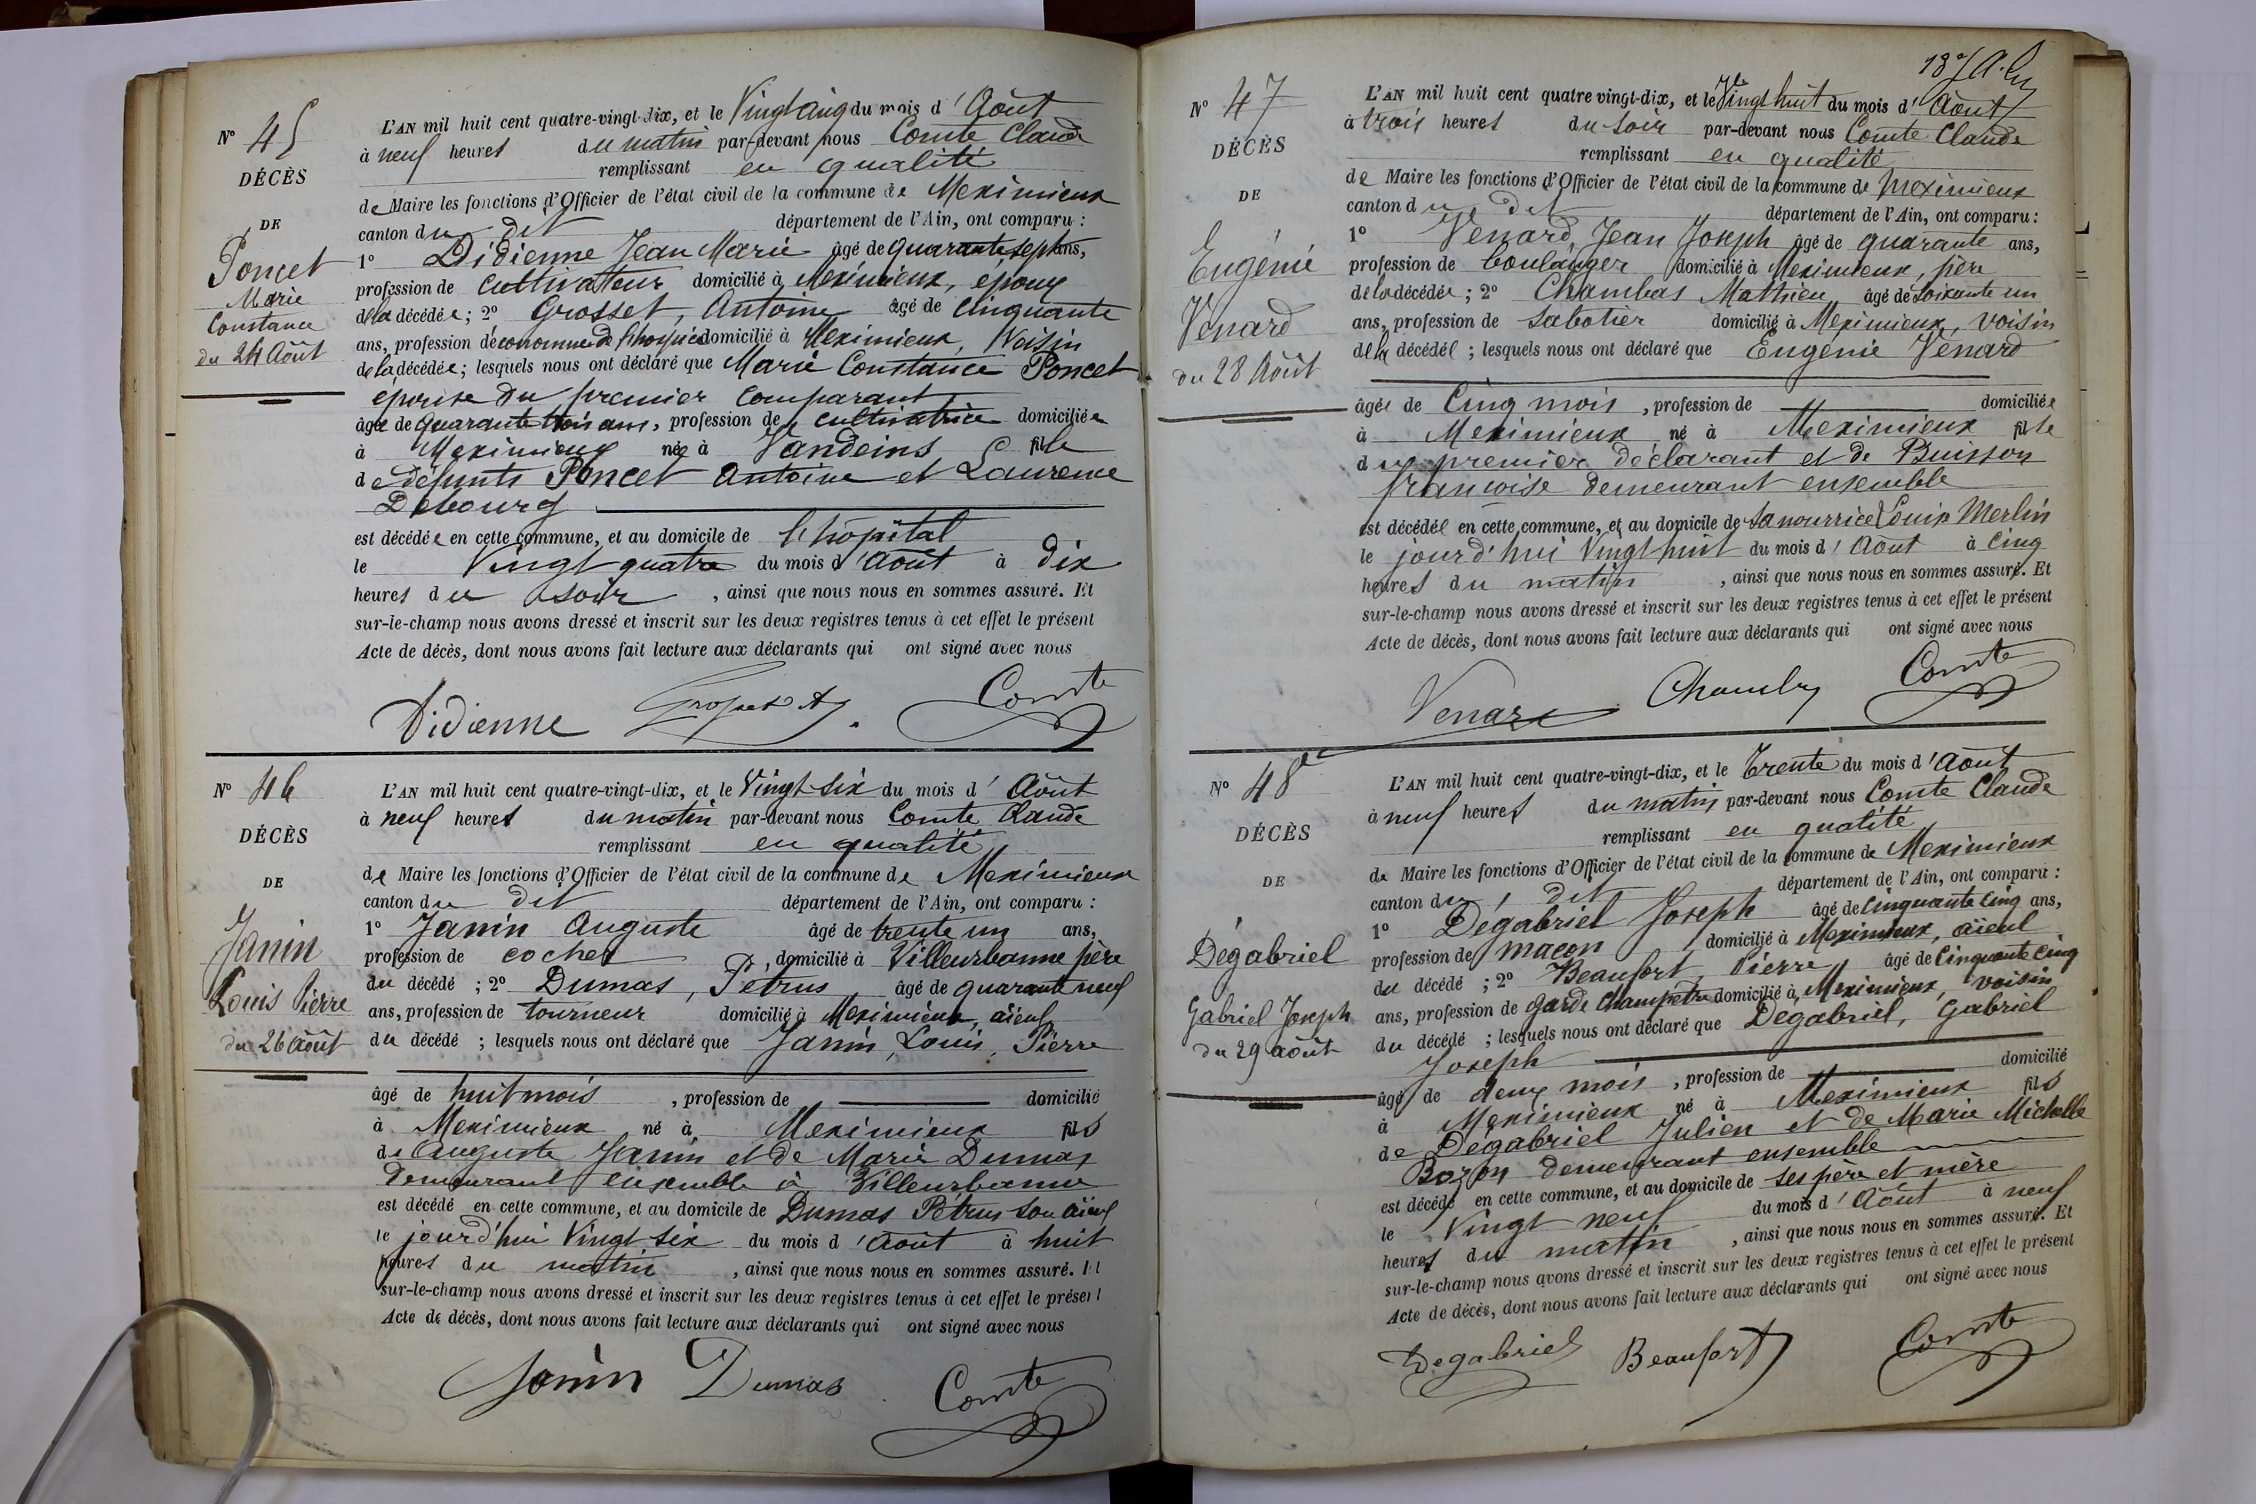 N° 45
DÉCÈS
DE
Poncet
Marie
Constance
du 24 Août
L'AN mil huit cent quatre-vingt-dix, et le Vingt cinq du mois d'Août
à neuf heures du matin par-devant nous Comte Claude
remplissant en qualité
de Maire les fonctions d'Officier de l'état civil de la commune de Meximieux
canton du dit département de l'Ain, ont comparu :
1° Didienne Jean Marie âgé de quarante sept ans,
profession de cultivateur domicilié à Meximieux, époux
de la décédée ; 2° Grosset, Antoine âgé de Cinquante
ans, profession d'économe de l'hospice domicilié à Meximieux, Voisin
de la décédée ; lesquels nous ont déclaré que Marie Constance Poncet
épouse du premier comparant
âgée de quarante trois ans, profession de cultivatrice domiciliée
à Meximieux née à Vandeins fille
de défunts Poncet Antoine et Laurence
Debourg
est décédée en cette commune, et au domicile de l'hôpital
le Vingt quatre du mois d'Août à dix
heures du soir, ainsi que nous nous en sommes assuré. Et
sur-le-champ nous avons dressé et inscrit sur les deux registres tenus à cet effet le présent
Acte de décès, dont nous avons fait lecture aux déclarants qui ont signé avec nous
Didienne Grosset A. Comte
N° 46
DÉCÈS
DE
Janin
Louis Pierre
du 26 Août
L'AN mil huit cent quatre-vingt-dix, et le Vingt-six du mois d'Août
à neuf heures du matin par-devant nous Comte Claude
remplissant en qualité
de Maire les fonctions d'Officier de l'état civil de la commune de Meximieux
canton du dit département de l'Ain, ont comparu :
1° Janin Auguste âgé de trente un ans,
profession de cocher, domicilié à Villeurbanne père
du décédé ; 2° Dumas, Pétrus âgé de quarante neuf
ans, profession de tourneur domicilié à Meximieux, aïeul
du décédé ; lesquels nous ont déclaré que Janin, Louis, Pierre
âgé de huit mois, profession de domicilié
à Meximieux né à Meximieux fils
de Auguste Janin et de Marie Dumas
demeurant ensemble à Villeurbanne
est décédé en cette commune, et au domicile de Dumas Pétrus son aïeul
le jourd'hui Vingt six du mois d'Août à huit
heures du matin, ainsi que nous nous en sommes assuré. Et
sur-le-champ nous avons dressé et inscrit sur les deux registres tenus à cet effet le présent
Acte de décès, dont nous avons fait lecture aux déclarants qui ont signé avec nous
Janin Dumas Comte
N° 47
DÉCÈS
DE
Eugénie
Venard
du 28 Août
L'AN mil huit cent quatre vingt-dix, et le Vingt huit du mois d'Août
à trois heures du soir par-devant nous Comte Claude
remplissant en qualité
de Maire les fonctions d'Officier de l'état civil de la commune de Meximieux
canton du dit département de l'Ain, ont comparu :
1° Venard, Jean Joseph âgé de quarante ans,
profession de boulanger domicilié à Meximieux, père
de la décédée ; 2° Chambas Mathieu âgé de soixante un
ans, profession de sabotier domicilié à Meximieux, voisin
de la décédée ; lesquels nous ont déclaré que Eugénie Venard
âgée de Cinq mois, profession de domiciliée
à Meximieux né à Meximieux fille
du premier déclarant et de Buisson
françoise demeurant ensemble
est décédée en cette commune, et au domicile de sa nourrice Louis Merlin
le jourd'hui Vingt huit du mois d'Août à Cinq
heures du matin, ainsi que nous nous en sommes assuré. Et
sur-le-champ nous avons dressé et inscrit sur les deux registres tenus à cet effet le présent
Acte de décès, dont nous avons fait lecture aux déclarants qui ont signé avec nous
Venard Comte
N° 48
DÉCÈS
DE
Dégabriel
Gabriel Joseph
du 29 août
L'AN mil huit cent quatre-vingt-dix, et le Trente du mois d'Août
à neuf heures du matin par-devant nous Comte Claude
remplissant en qualité
de Maire les fonctions d'Officier de l'état civil de la commune de Meximieux
canton du dit département de l'Ain, ont comparu :
1° Dégabriel Joseph âgé de Cinquante Cinq ans,
profession de maçon domicilié à Meximieux, aïeul
du décédé ; 2° Beaufort, Pierre âgé de Cinquante Cinq
ans, profession de garde champêtre domicilié à Meximieux, voisin
du décédé ; lesquels nous ont déclaré que Dégabriel, Gabriel
Joseph
âgé de deux mois, profession de domicilié
à Meximieux né à Meximieux fils
de Dégabriel Julien et de Marie Michelle
Bozon demeurant ensemble
est décédé en cette commune, et au domicile de ses père et mère
le Vingt neuf du mois d'Août à neuf
heures du matin, ainsi que nous nous en sommes assuré. Et
sur-le-champ nous avons dressé et inscrit sur les deux registres tenus à cet effet le présent
Acte de décès, dont nous avons fait lecture aux déclarants qui ont signé avec nous
Degabriel Beaufort Comte